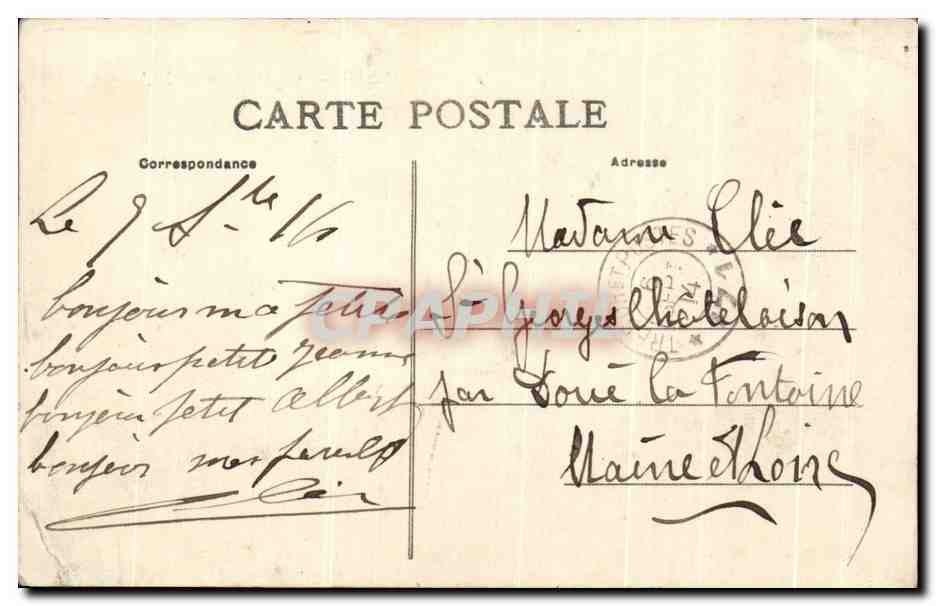 CARTE POSTALE
Correspondance
Adresse
Le 9 S-bre 16
bonjour ma petite
bonjour petit Jeanne
bonjour petit Albert
bonjour
Madame Elie
St Georges Chatelaison
par Doué la Fontaine
Maine et Loire
TRÉSOR ET POSTES
CPAPHIL